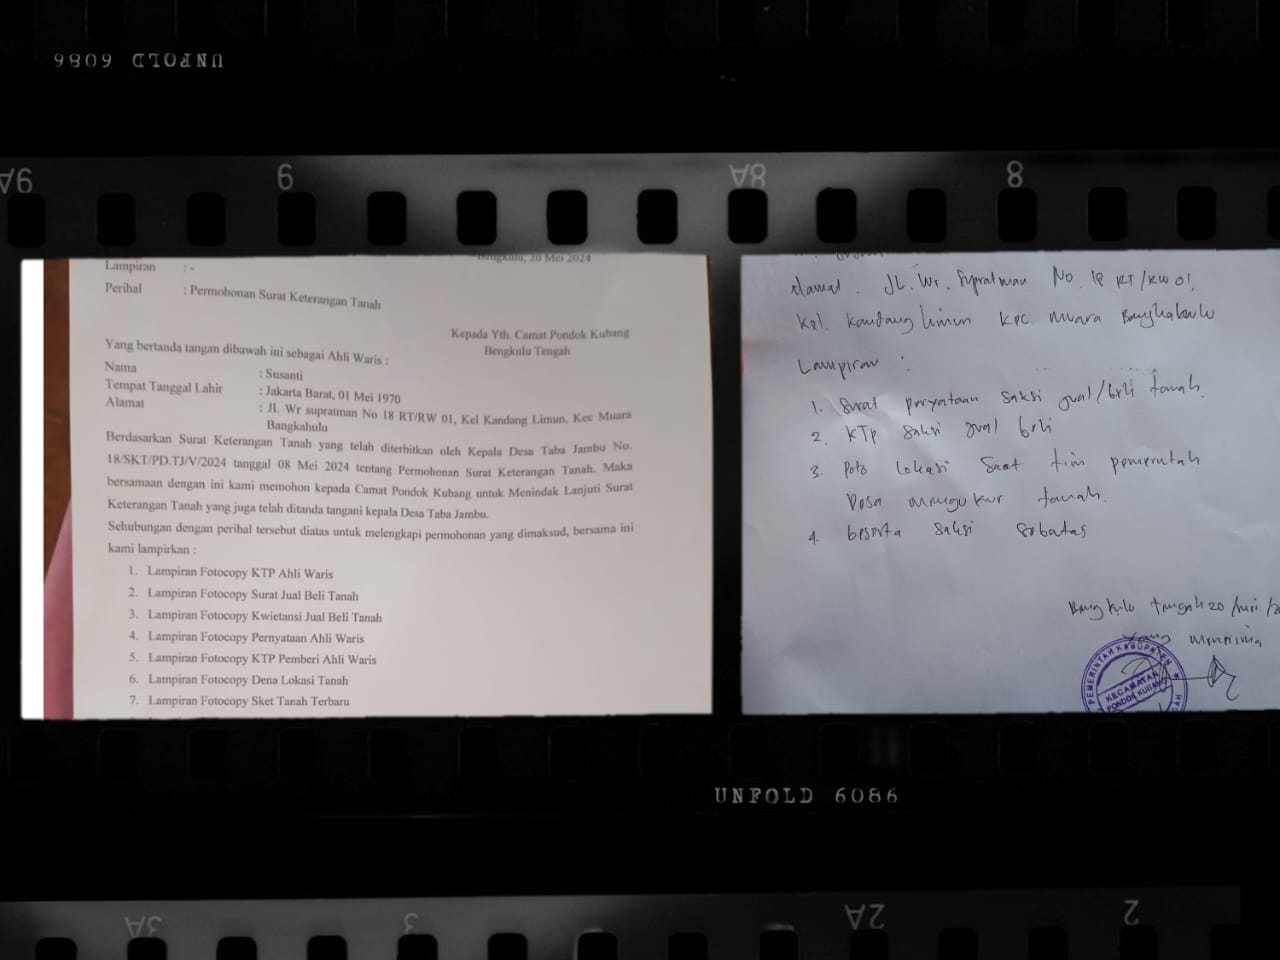 UNFOLD 6086
9A
9
8A
8
Bengkulu, 20 Mei 2024
Lampiran : -
Perihal : Permohonan Surat Keterangan Tanah
Kepada Yth. Camat Pondok Kubang
Bengkulu Tengah
Yang bertanda tangan dibawah ini sebagai Ahli Waris :
Nama : Susanti
Tempat Tanggal Lahir : Jakarta Barat, 01 Mei 1970
Alamat : Jl. Wr supratman No 18 RT/RW 01, Kel Kandang Limun, Kec Muara
Bangkahulu
Berdasarkan Surat Keterangan Tanah yang telah diterbitkan oleh Kepala Desa Taba Jambu No.
18/SKT/PD.TJ/V/2024 tanggal 08 Mei 2024 tentang Permohonan Surat Keterangan Tanah. Maka
bersamaan dengan ini kami memohon kepada Camat Pondok Kubang untuk Menindak Lanjuti Surat
Keterangan Tanah yang juga telah ditanda tangani kepala Desa Taba Jambu.
Sehubungan dengan perihal tersebut diatas untuk melengkapi permohonan yang dimaksud, bersama ini
kami lampirkan :
1. Lampiran Fotocopy KTP Ahli Waris
2. Lampiran Fotocopy Surat Jual Beli Tanah
3. Lampiran Fotocopy Kwietansi Jual Beli Tanah
4. Lampiran Fotocopy Pernyataan Ahli Waris
5. Lampiran Fotocopy KTP Pemberi Ahli Waris
6. Lampiran Fotocopy Dena Lokasi Tanah
7. Lampiran Fotocopy Sket Tanah Terbaru
alamat . JL. Wr. Supratman No. 18 RT/RW 01.
Kel. Kandang limun Kec. Muara Bangkahulu
Lampiran :
1. Surat peryataan Saksi jual/beli tanah.
2. KTp Saksi jual beli
3. Poto Lokasi Saat tim pemerintah
Desa mengukur tanah.
4. beserta Saksi Sebatas
Bengkulu tengah 20/mei/20
Yang menerima
PEMERINTAH KABUPATEN
KECAMATAN
PONDOK KUBANG
UNFOLD 6086
3A
3
2A
2